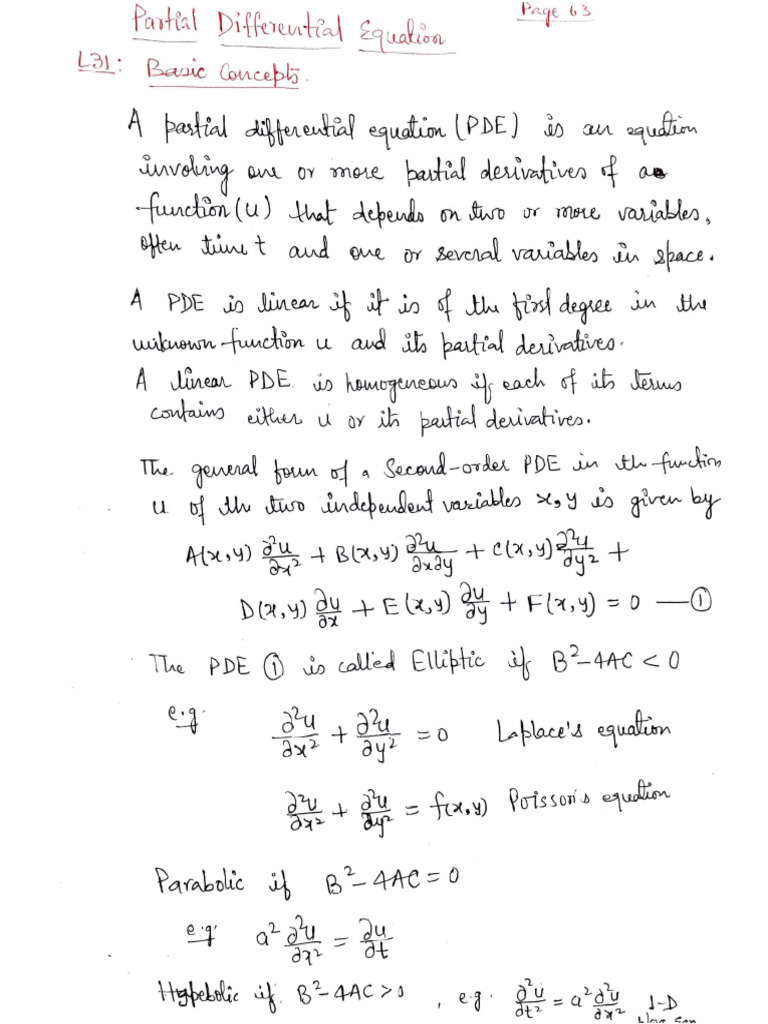 Partial Differential Equation Page 63
L31: Basic Concepts.
A partial differential equation (PDE) is an equation
involving one or more partial derivatives of a
function (u) that depends on two or more variables,
often time t and one or several variables in space.
A PDE is linear if it is of the first degree in the
unknown function u and its partial derivatives.
A linear PDE is homogeneous if each of its terms
contains either u or its partial derivatives.
The general form of a Second-order PDE in the function
u of the two independent variables x, y is given by
A(x,y) ∂²u/∂x² + B(x,y) ∂²u/∂x∂y + C(x,y) ∂²u/∂y² +
D(x,y) ∂u/∂x + E(x,y) ∂u/∂y + F(x,y) = 0 — ①
The PDE ① is called Elliptic if B²-4AC < 0
e.g. ∂²u/∂x² + ∂²u/∂y² = 0 Laplace's equation
∂²u/∂x² + ∂²u/∂y² = f(x,y) Poisson's equation
Parabolic if B²-4AC = 0
e.g. a² ∂²u/∂x² = ∂u/∂t
Hypebolic if B²-4AC > 0, e.g. ∂²u/∂t² = a² ∂²u/∂x² 1-D